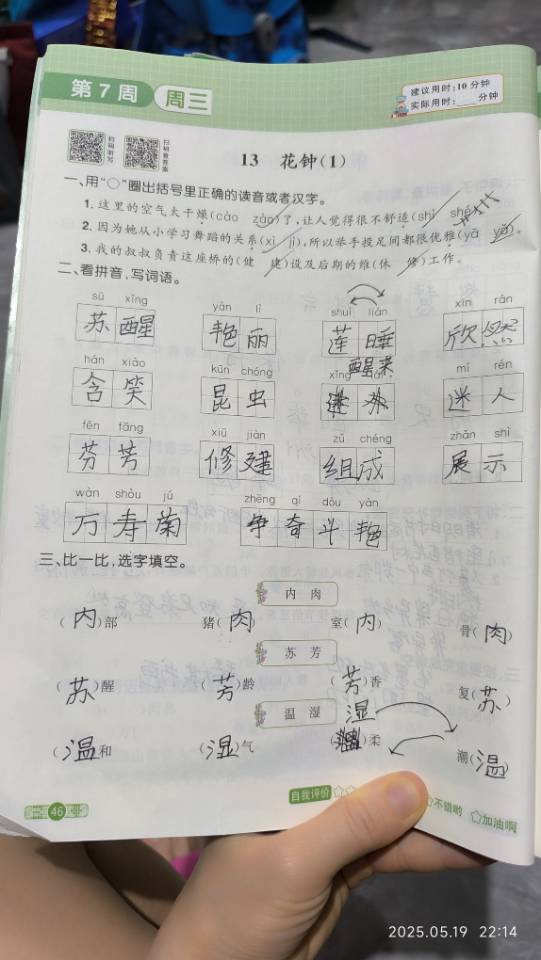 第7周 周三
建议用时:10分钟
实际用时:____分钟
扫码听写
扫码查答案
13 花钟(1)
一、用“○”圈出括号里正确的读音或者汉字。
1. 这里的空气太干燥(cào zào)了,让人觉得很不舒适(shì shé)。
2. 因为她从小学习舞蹈的关系(xì jì),所以举手投足间都很优雅(yà yǎ)。
3. 我的叔叔负责这座桥的(健 建)设及后期的维(休 修)工作。
二、看拼音,写词语。
sū xǐng yàn lì shuì lián xīn rán
苏醒 艳丽 莲睡 欣
醒来
hán xiào kūn chóng xǐng mí rén
含笑 昆虫 迷人
fēn fāng xiū jiàn zǔ chéng zhǎn shì
芬芳 修建 组成 展示
wàn shòu jú zhēng qí dòu yàn
万寿菊 争奇斗艳
三、比一比,选字填空。
内 肉
(内)部 猪(肉) 室(内) 骨(肉)
苏 芳
(苏)醒 (芳)龄 (芳)香 复(苏)
温 湿
湿
(温)和 (湿)气 ( )柔 潮(温)
46
自我评价
不错哟
加油啊
2025.05.19 22:14